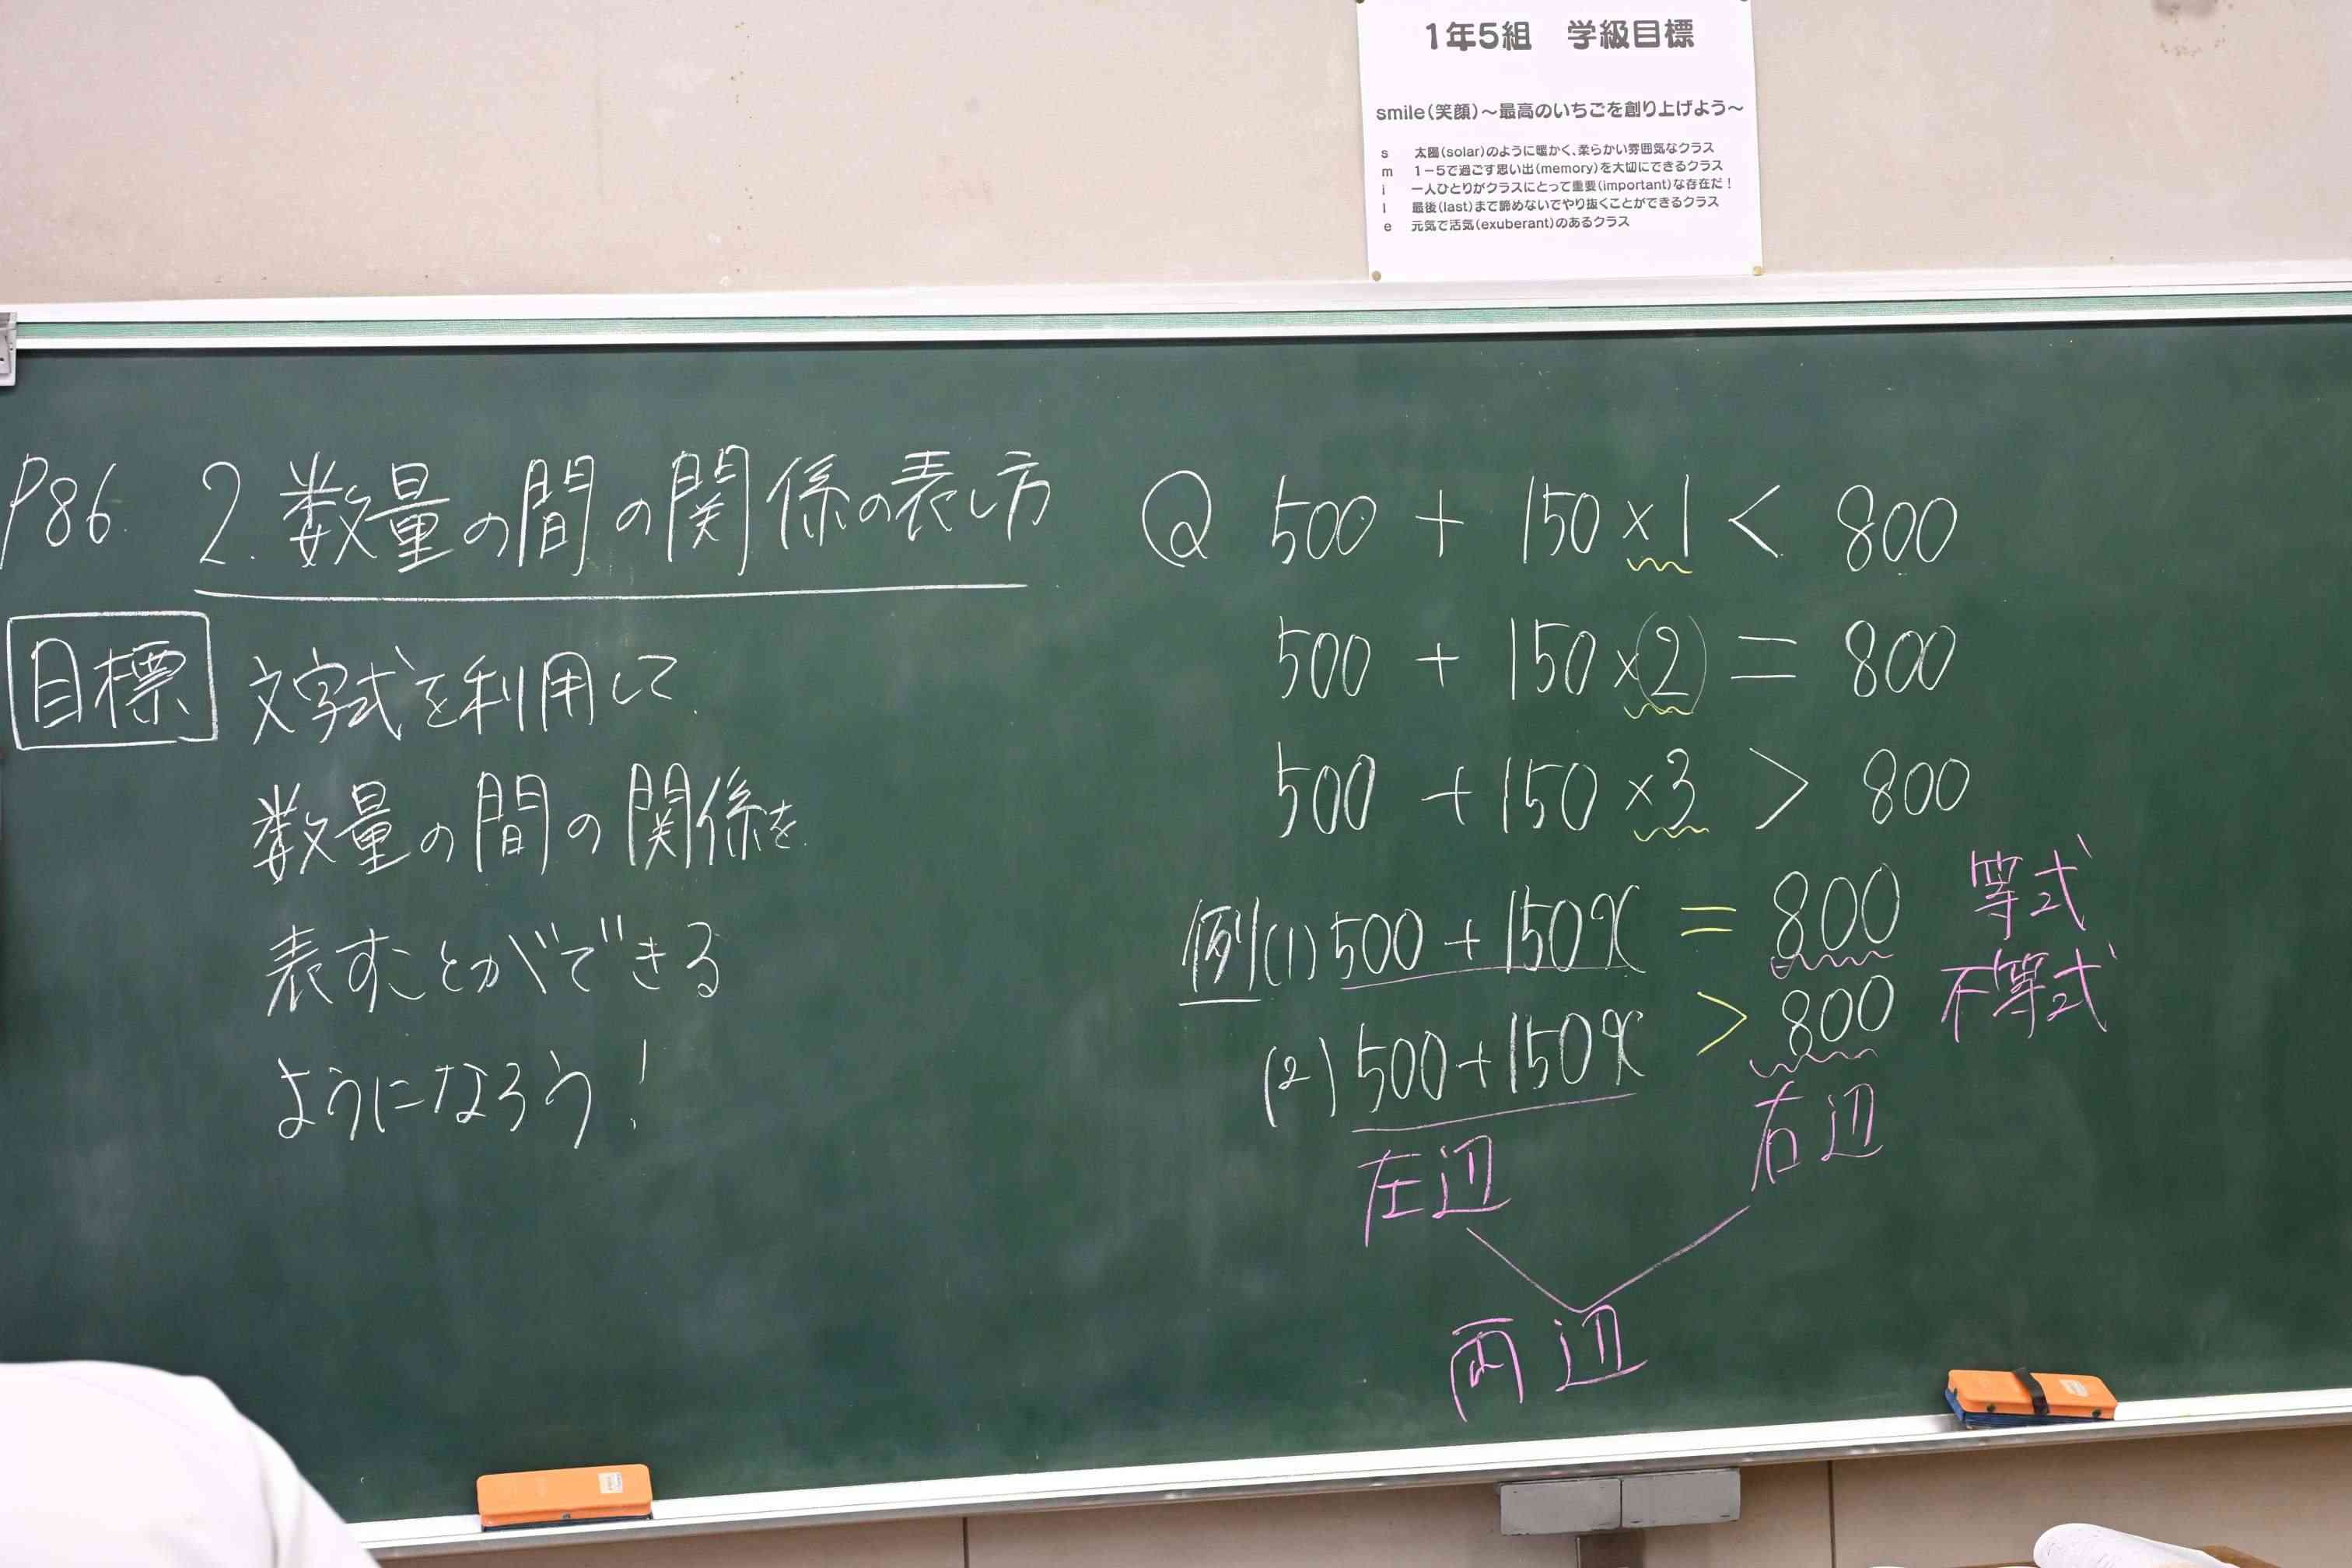 1年5組 学級目標
smile(笑顔)～最高のいちごを創り上げよう～
s 太陽(solar)のように暖かく、柔らかい雰囲気なクラス
m 1－5で過ごす思い出(memory)を大切にできるクラス
i 一人ひとりがクラスにとって重要(important)な存在だ！
l 最後(last)まで諦めないでやり抜くことができるクラス
e 元気で活気(exuberant)のあるクラス
P86. 2. 数量の間の関係の表し方
目標 文字式を利用して
数量の間の関係を
表すことができる
ようになろう!
Q 500 + 150 ×1 < 800
500 + 150 ×2 = 800
500 + 150 ×3 > 800
例(1) 500 + 150x = 800 等式
(2) 500 + 150x > 800 不等式
左辺 右辺
両辺